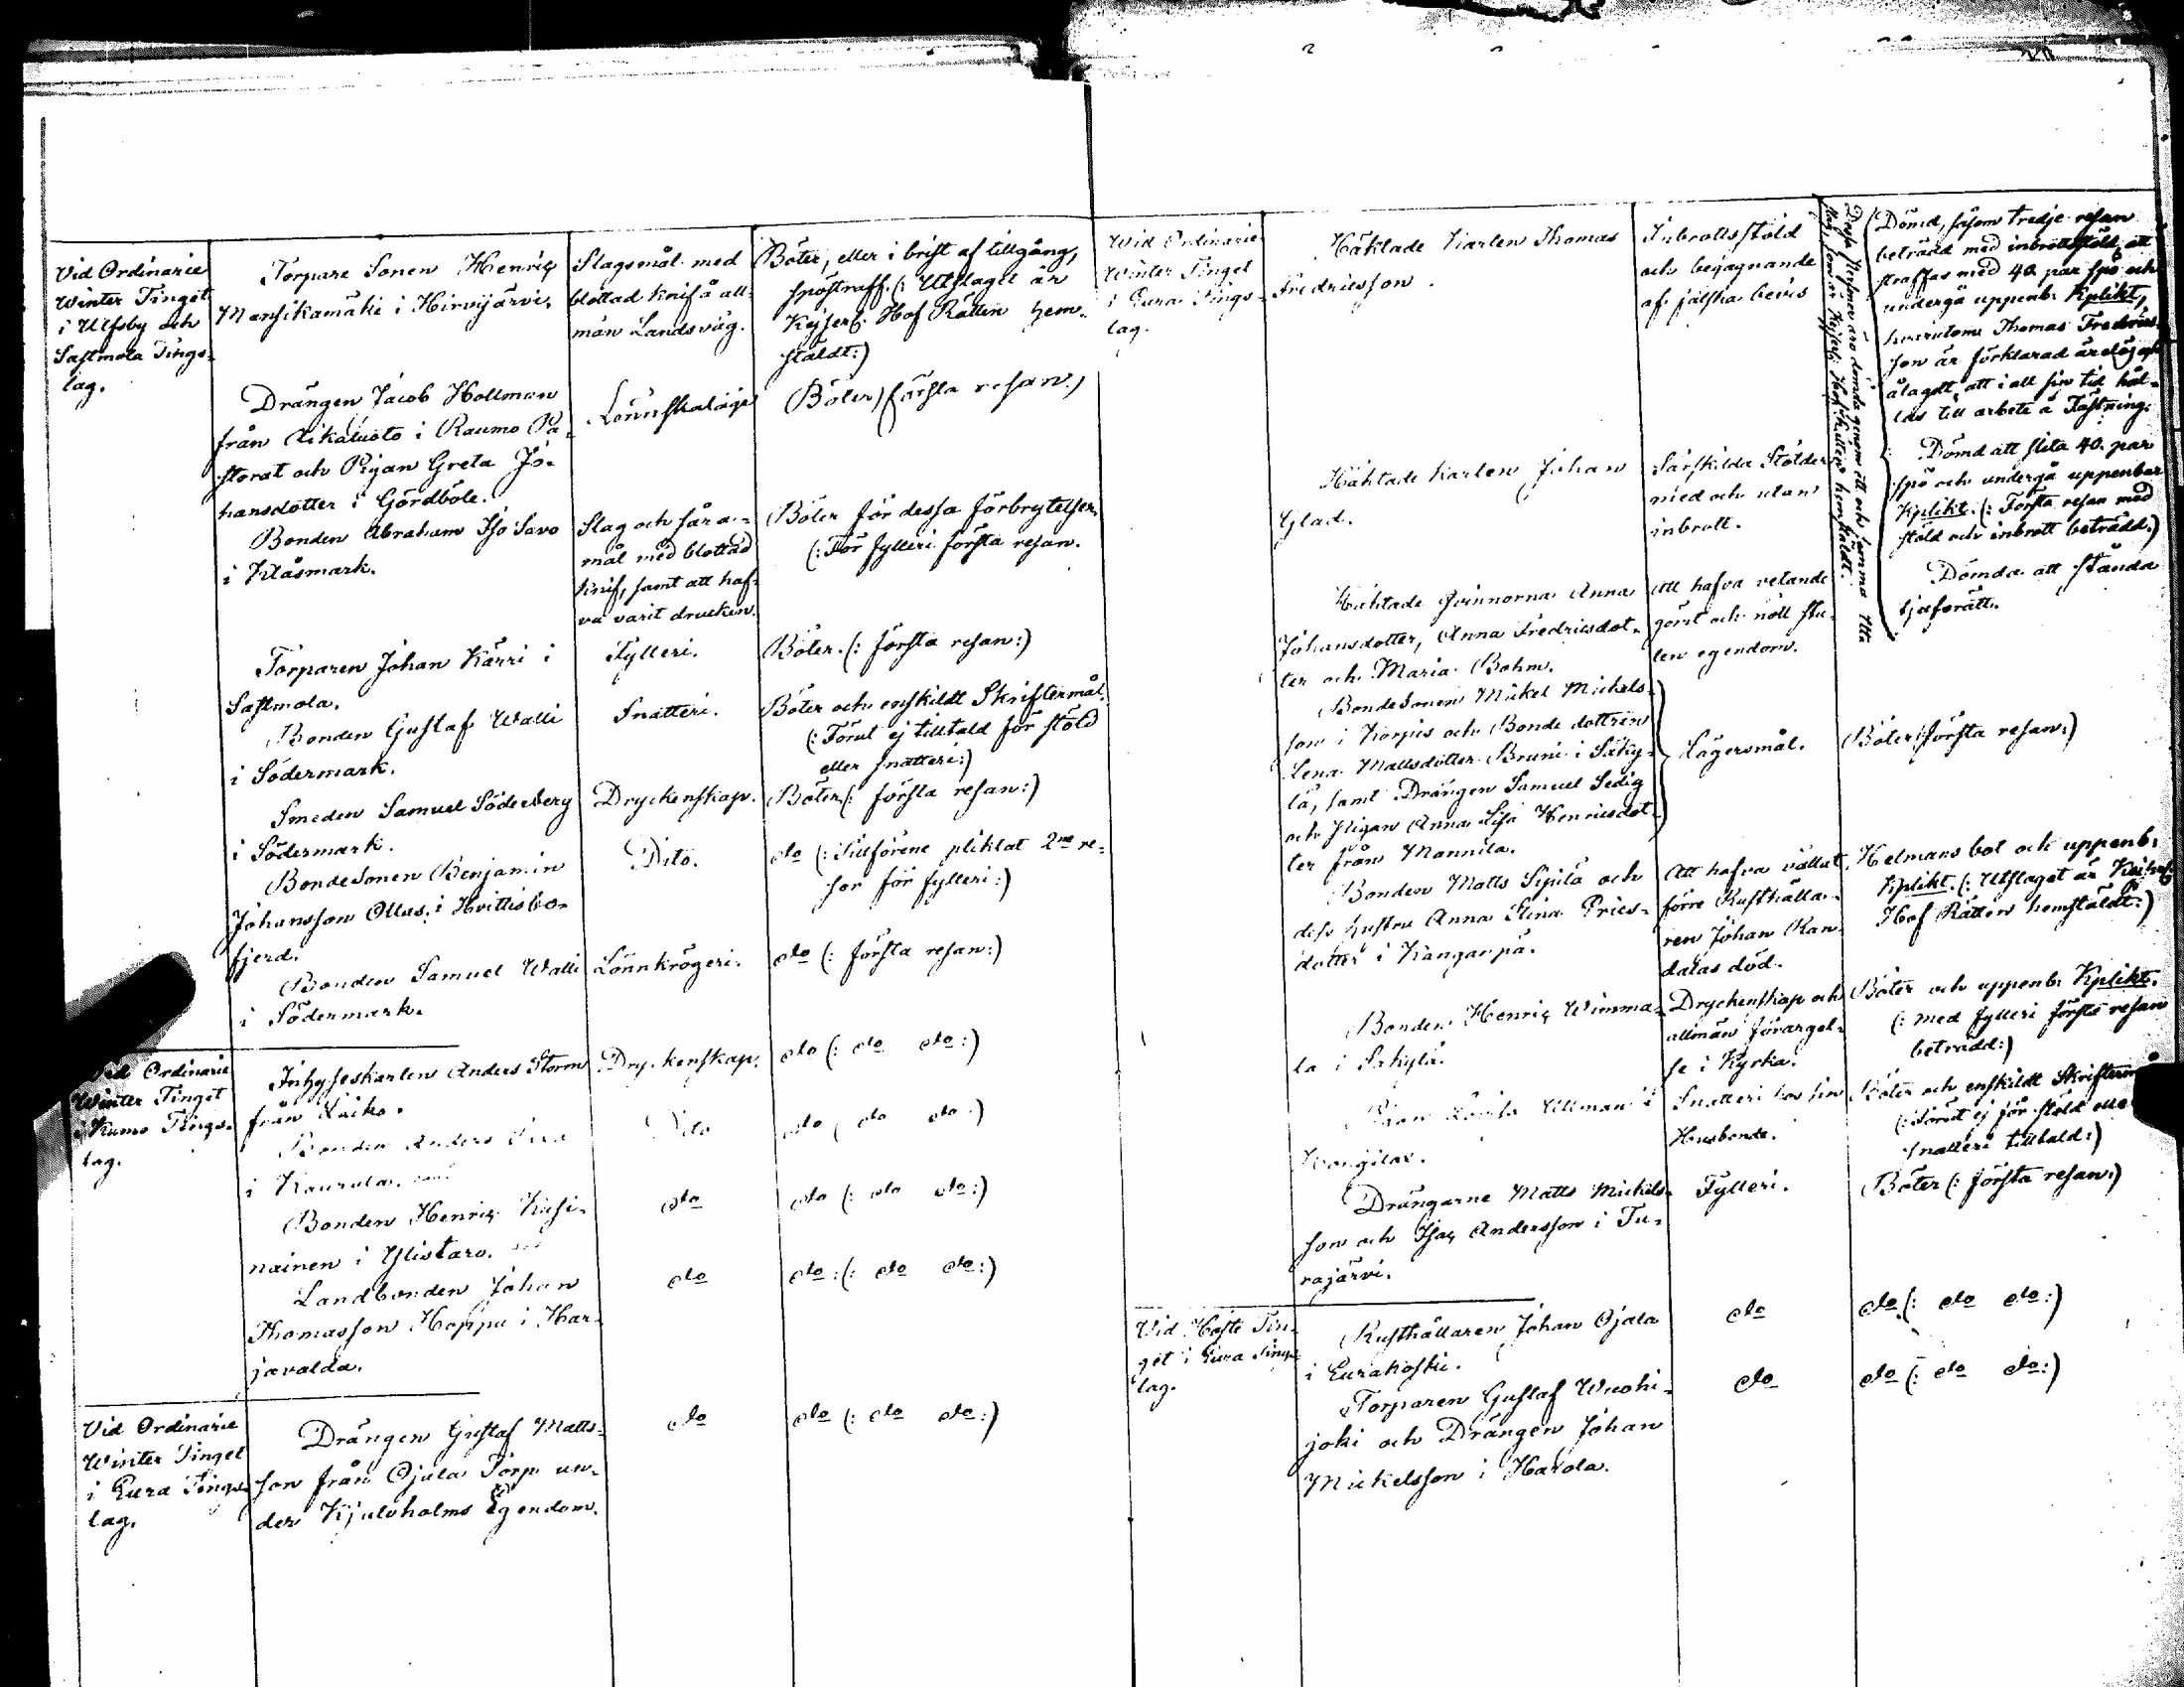 Vid Ordinarie
Winter Tinget
i Ulfsby och
Sastmola Tings-
lag.
Torpare Sonen Henric
Mansikamäki i Hirvijärvi,
Slagsmål med
blottad knif å all-
män Landsväg.
Böter, eller i brist af tillgång,
spöstraff. (: Utslaget är
Kejserl. Hof Rätten hem-
stäldt:)
Drängen Jacob Hollman
från i Raumo Pa-
storat och Pigan Greta Jo-
hansdotter i Gördböle.
Lönnskaläge
Böter (första resan.)
Bonden Abraham Iso Savo
i Klåsmark.
Slag och sår a-
mål med blottad
knif, samt att haf-
va varit drucken.
Böter för dessa förbrytelser,
(: För fylleri första resan.
Torparen Johan Kärri i
Sastmola.
Fylleri.
Böter. (: första resan:)
Bonden Gustaf Walli
i Södermark.
Snatteri.
Böter och enskildt Skriftermål.
(: Förut ej tilltald för stöld
eller snatteri:)
Smeden Samuel Söderberg
i Södermark.
Dryckenskap.
Böter (: första resan:)
BondeSonen Benjamin
Johansson Ollas, i Hvittisbo-
fjerd.
Dito.
do (: Tillförene pliktat 2ne re-
sor för fylleri:)
Bonden Samuel Walli
i Södermark.
Lönnkrögeri.
do (: första resan:)
Vid Ordinarie
Winter Tinget
i Kumo Tings-
lag.
Inhyseskarlen Anders Storm
från
Dryckenskap.
do (: do do:)
Bonden Anders
i
Dito
do (do do:)
Bonden Henric
nainen i Ylistaro.
do
do (: do do:)
Landbonden Johan
Thomasson Hoppu i Har-
javalda.
do
do: (: do do:)
Vid Ordinarie
Winter Tinget
i Eura Tings-
lag.
Drängen Gustaf Matts-
son från Ojala Torp un-
der Kjuloholms Egendom.
do
do (: do do:)
Wid Ordinarie
Winter Tinget
i Eura Tings-
lag.
Häktade Karlen Thomas
Fredricsson.
Inbrottsstöld
och begagnande
af falska bevis
Dessa Personer äro dömda genom ett och samma Ut-
slag, som är Kejserl. Hof Rätten hemstäldt.
Dömd, såsom tredje resan
beträdd med inbrottsstöld, att
straffas med 40 par spö och
undergå uppenb. Kplikt,
hvarutom Thomas Fredrics-
son är förklarad ärelös och
ålagdt, att i all sin tid hål-
las till arbete å Fästning.
Häktade Karlen Johan
Glad.
Särskilda Stölder
med och utan
inbrott.
Dömd att slita 40. par
spö och undergå uppenbar
Kplikt. (: Första resan med
stöld och inbrott beträdd.)
Häktade Qvinnorna Anna
Johansdotter, Anna Fredricsdot-
ter och Maria Bohm.
Att hafva vetande
gömt och nött stu-
len egendom.
Dömda att stånda
tjufsrätt.
BondeSonen Mickel Mickels-
son i Korpis och Bonde dottren
Lena Mattsdotter Bruni i Säky-
lä, samt Drängen Samuel Sedig
och Pigan Anna Lisa Henricsdot-
ter från Mannila.
Lägersmål.
Böter (första resan:)
Bonden Matts Sipilä och
dess hustru Anna Stina Prics-
dotter i Kangarpä.
Att hafva vållat
förre Rusthålla-
ren Johan Ran-
dalas död.
Helmans bot och uppenb.
Kplikt. (: Utslaget är Kejserl.
Hof Rätten hemstäldt:)
Bonden Henric Wimma-
la i Sakylä.
Dryckenskap och
allmän förargel-
se i Kyrka.
Böter och uppenb. Kplikt.
(: med fylleri första resan
beträdd:)
Ullman i
Snatteri hos sin
Husbonde.
Böter och enskildt Skrifterm
(: Förut ej för stöld eller
snatteri tilltald:)
Drängarne Matts Mickels-
son och Isac Andersson i Tu-
rajärvi.
Fylleri.
Böter (: första resan:)
Vid Höste Tin-
get i Eura Tings-
lag.
Rusthållaren Johan Ojala
i Eurakoski.
do
do (: do do:)
Torparen Gustaf Wuohi-
joki och Drängen Johan
Mickelsson i Harola.
do
do (: do do:)